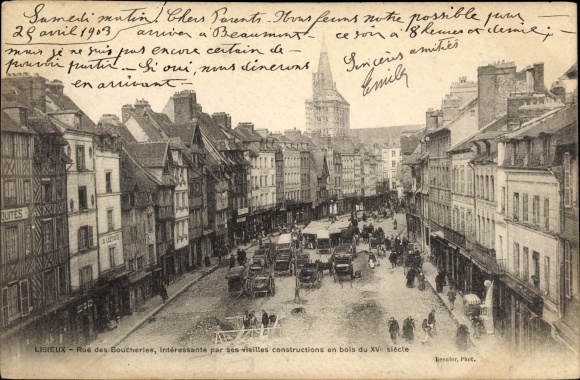 Samedi matin, Chers Parents. Nous ferons notre possible pour
29 avril 1903 arriver à Beaumont ce soir à 8 heures et demie;
mais je ne suis pas encore certain de
pouvoir partir. Si oui, nous dînerons
en arrivant.
Sincères amitiés
Emile
LISIEUX — Rue des Boucheries, Intéressante par ses vieilles constructions en bois du XVe siècle
Phot.